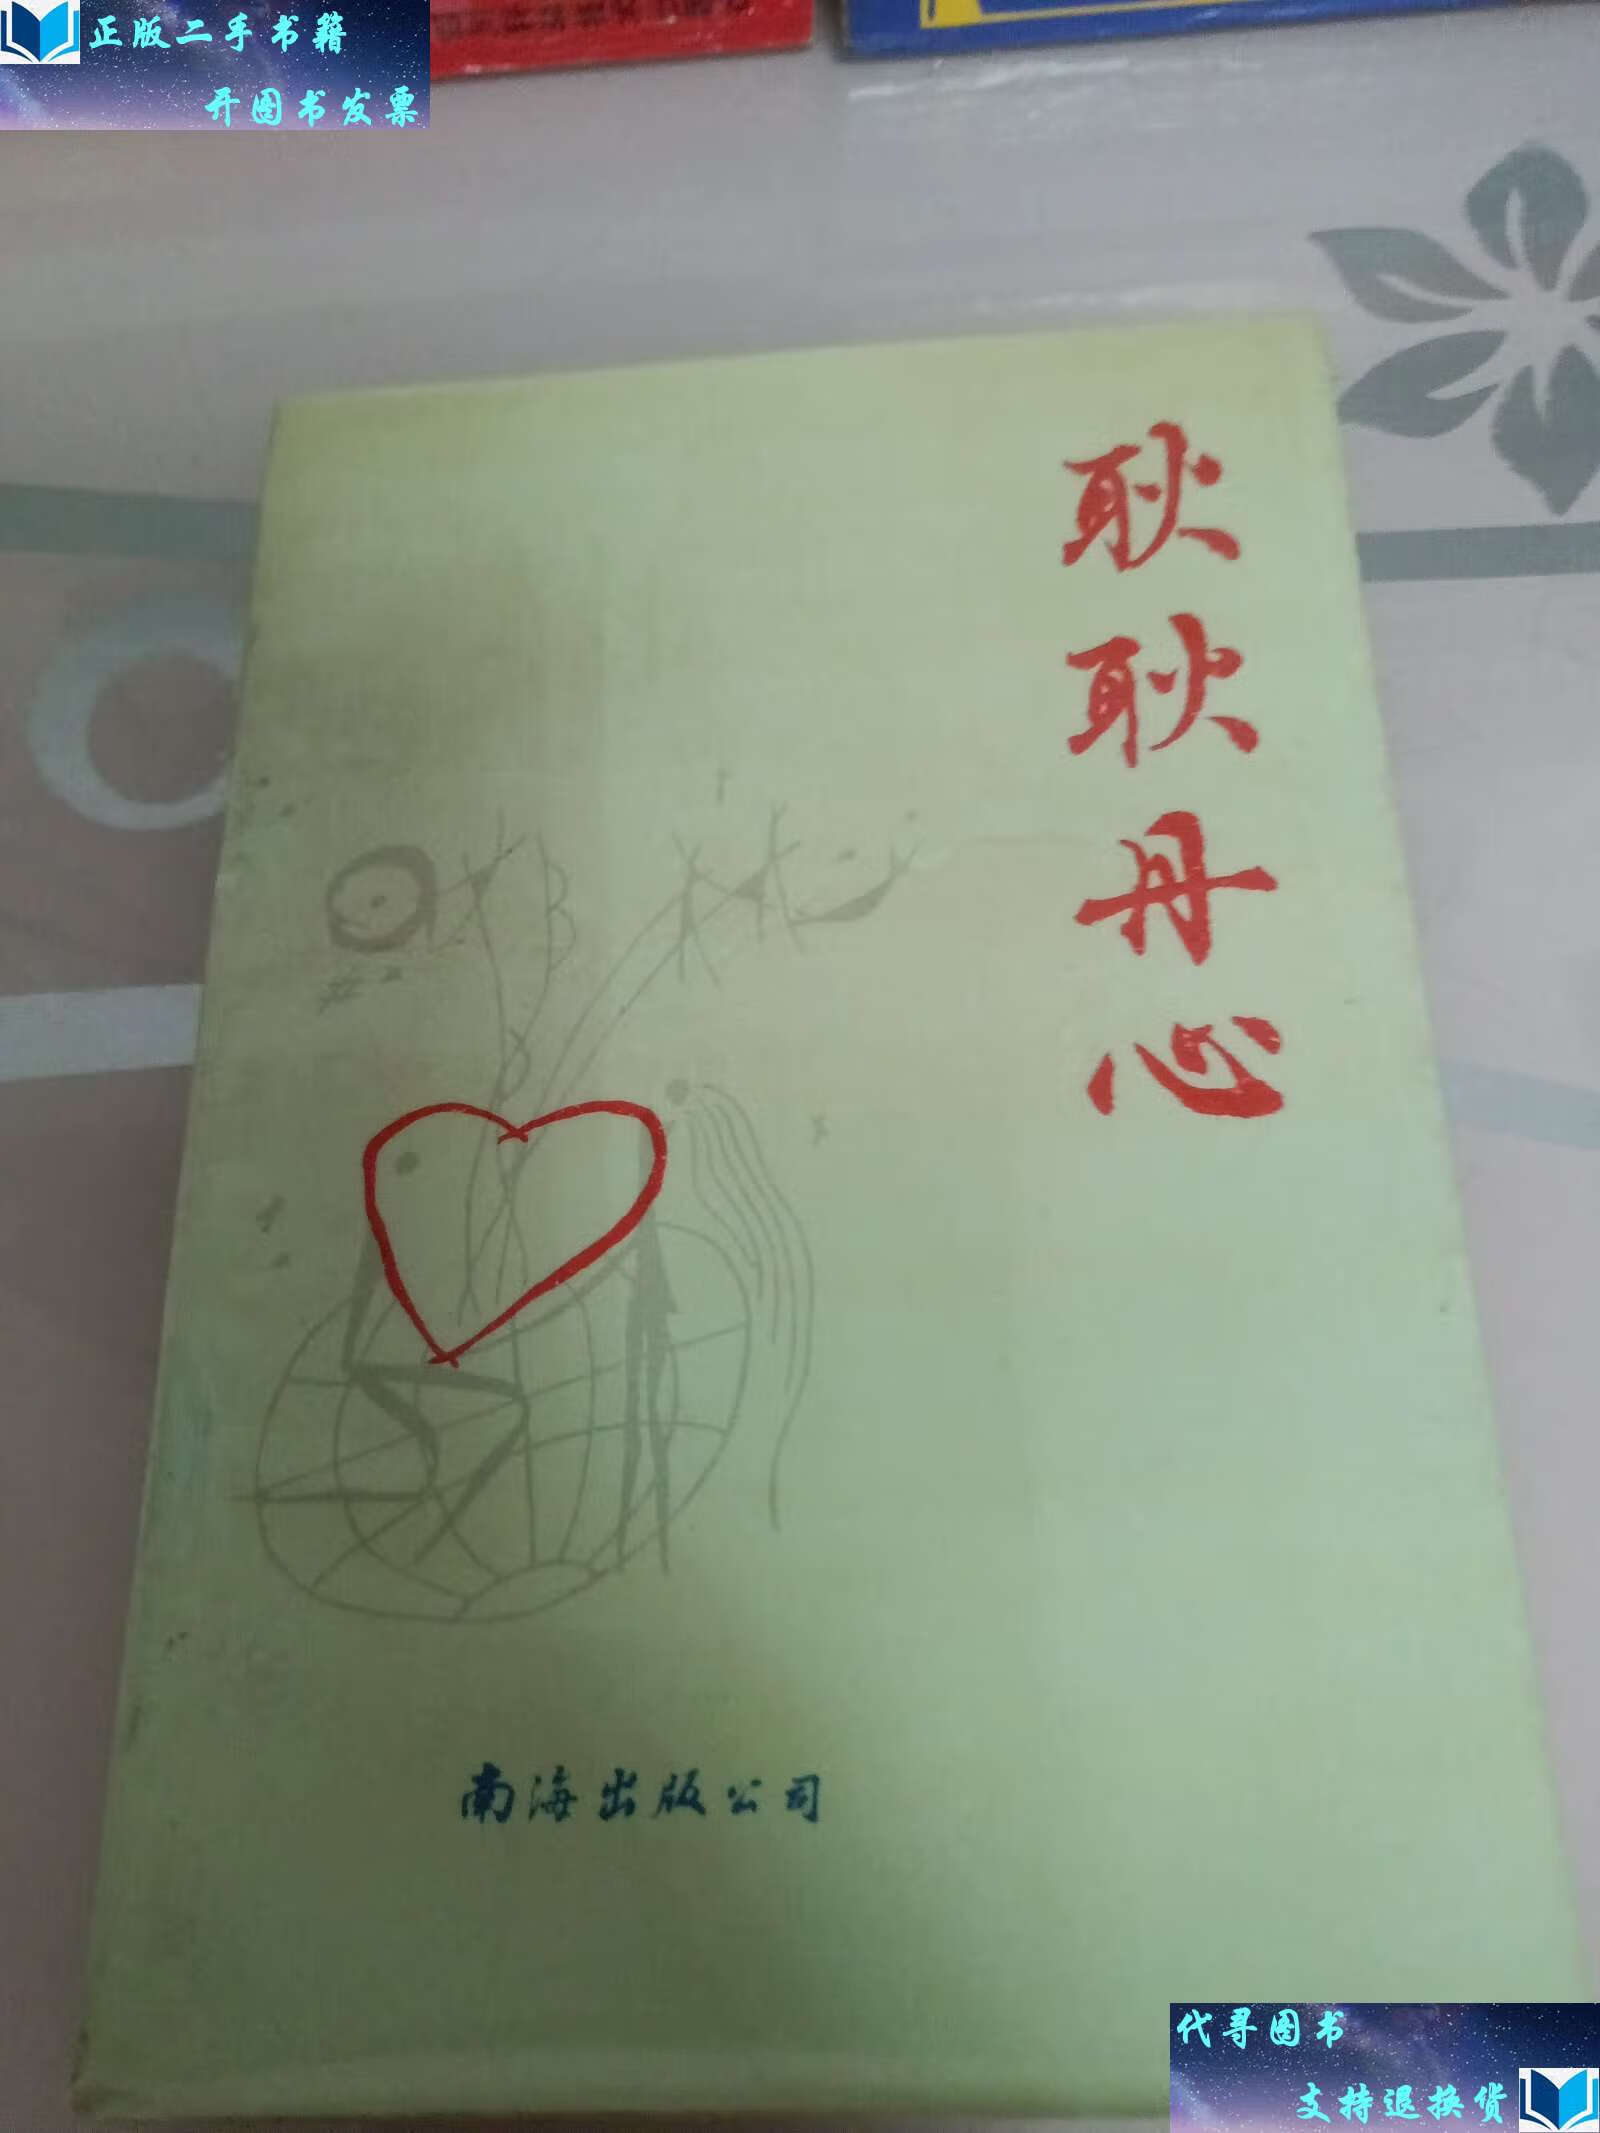 正版二手书籍
开图书发票
耿耿丹心
南海出版公司
代寻图书
支持退换货